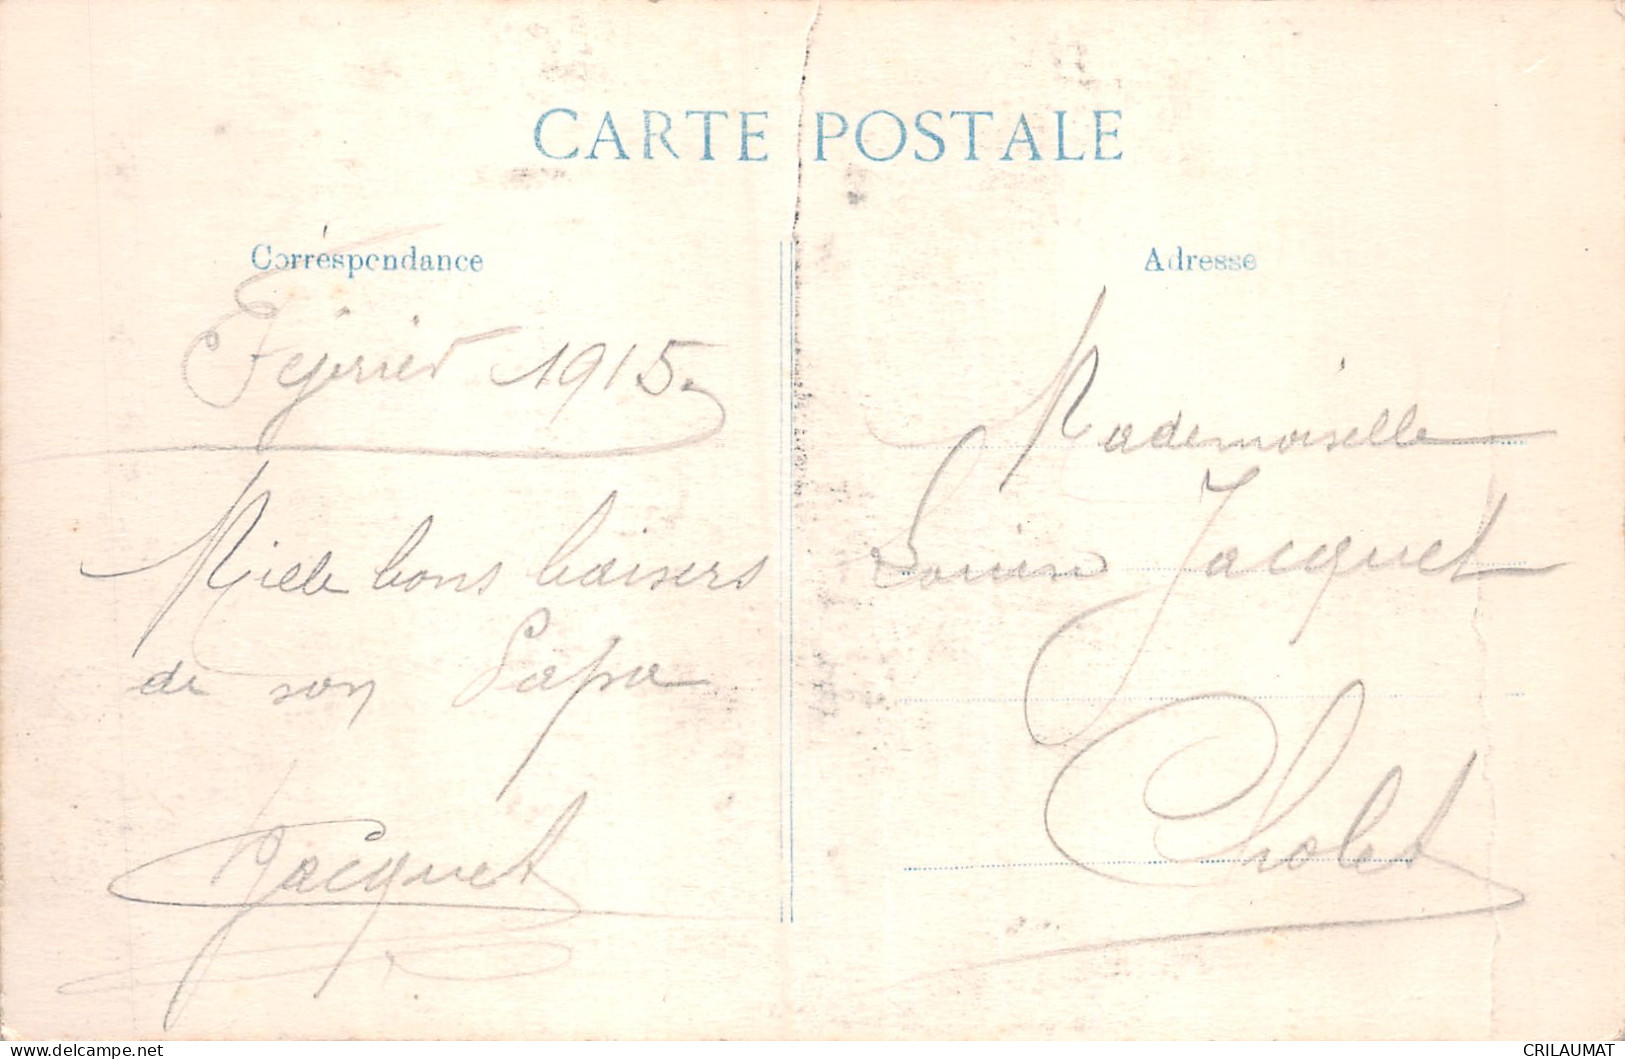 CARTE POSTALE
Correspondance
Février 1915.
Mille bons baisers
de son Papa
Jacquet
Adresse
Mademoiselle
Jacquet
Cholet
delcampe.net
CRILAUMAT